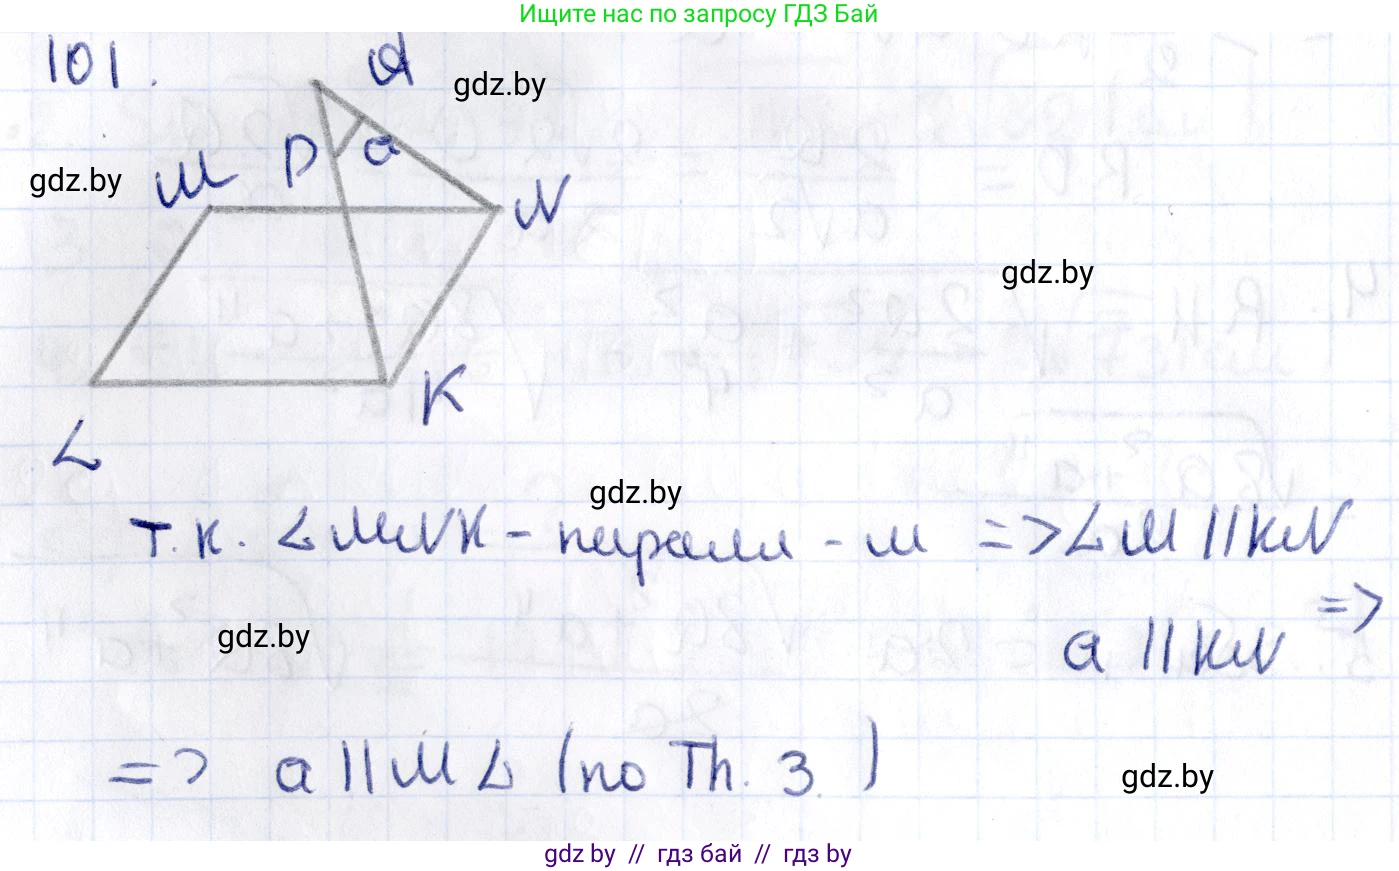 Ищите нас по запросу ГДЗ Бай
101.
A
gdz.by
D
a
gdz.by
M
N
gdz.by
K
L
gdz.by
т.к. LMNK - паралл - м => LM || KN
gdz.by
a || KN =>
=> a || ML (по Th. 3.)
gdz.by
gdz by // гдз бай // гдз by